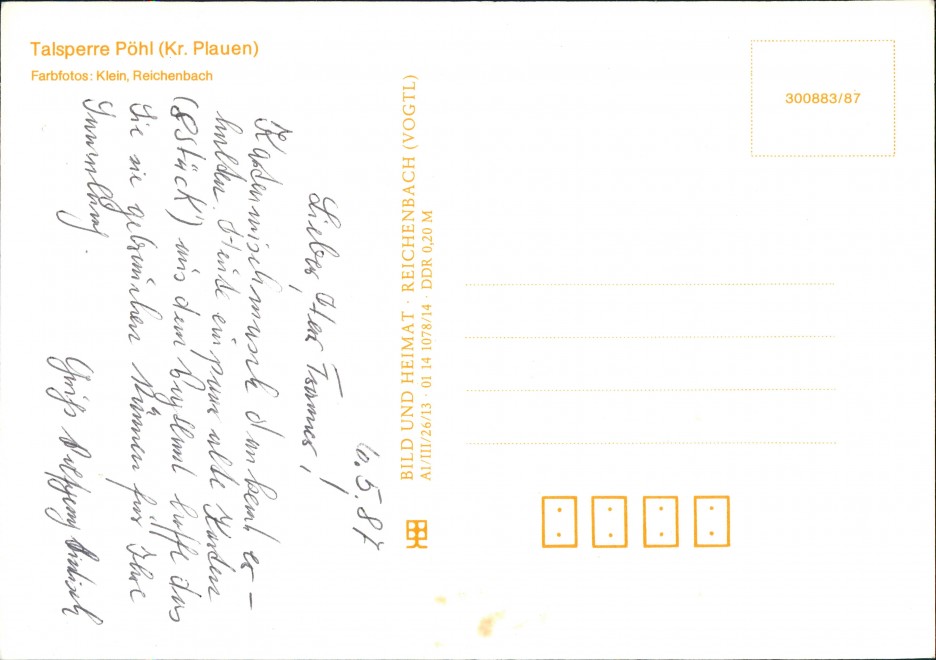 Talsperre Pöhl (Kr. Plauen)
Farbfotos: Klein, Reichenbach
300883/87
BILD UND HEIMAT · REICHENBACH (VOGTL)
A1/III/26/13 · 01 14 1078/14 · DDR 0,20 M
6.5.87
Lieber Herr
Kartenwunsch dankend er-
halten. Heute ein paar alte Karten
(8 Stück) aus dem hoffe das
Sie sie gebrauchen können für Ihre
Sammlung.
Gruß